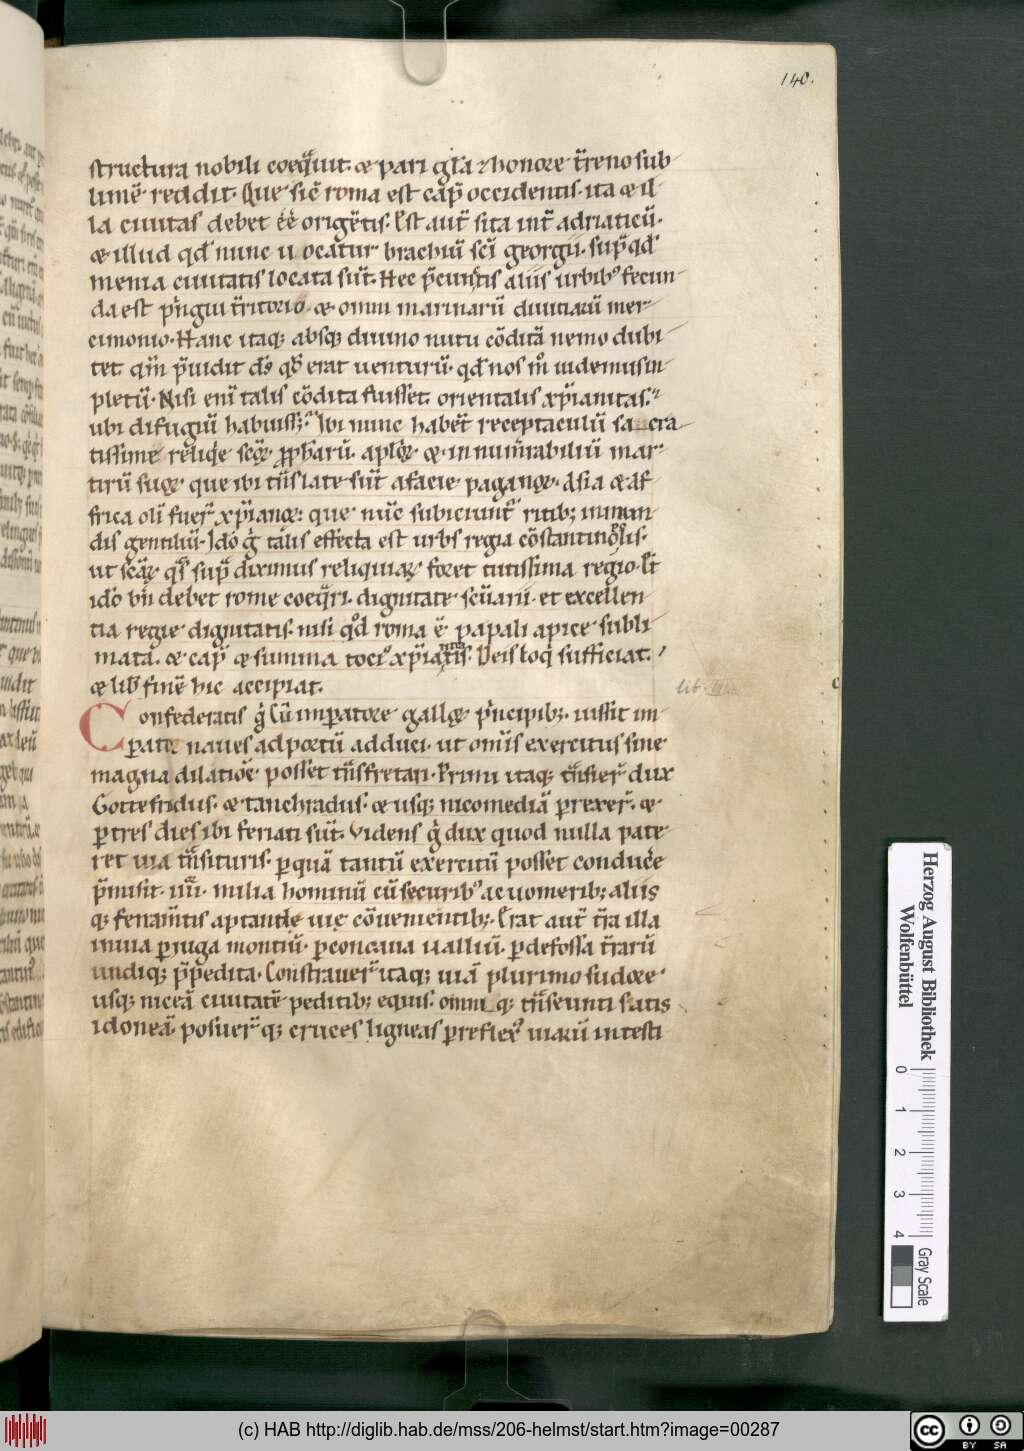 140.
structura nobili coeq̃uit. & pari gr̃a & honore t̃reno sub
limẽ reddit. Que sic̃ roma est cap̃ occidentis. ita & il
la ciuitas debet ẽẽ orig̃etis. Est aut̃ sita int̃ adriaticũ.
& illud qd̃ nunc uocatur brachiũ sc̃i georgii. sup̃ qd̃
menia ciuitatis locata sũt. Hec p̃ cunctis aliis urbib; fecun
da est p̃ngui t̃ritorio. & omni marinarũ diuitiarũ mer
cimonio. Hanc itaq; absq; diuino nutu cõditã nemo dubi
tet. qm̃ p̃uidit ds̃ qđ erat uenturũ. qd̃ nos m̊ uidemus in
pletũ. Nisi eni talis cõdita fuisset. orientalis xp̃ianitas.
ubi difugiũ habuiss&. Ibi nunc habet̃ receptaculũ sacra
tissime reliqie scõꝝ. pp̃harũ. aplõꝝ. &. innum̃abiliũ mar
tirũ suoꝝ. que ibi t̃nslate sũt a facie paganoꝝ. Asia & af
frica oli fuer̃ xp̃ianoꝝ: que nũc subiciunt̃ ritib; inmun
dis gentiliũ. Ido g̃ talis effecta est urbs regia cõstantinopolis.
ut sc̃aꝝ qs̃ sup̃ diximus reliquiaꝝ foret tutissima regio. Et
ido bñ debet rome coeq̃ri. dignitate sc̃uarii. et excellen
tia regie dignitatis. nisi qd̃ roma ẽ papali apice subli
mata. & cap̃ & summa toci xp̃ianitatis. De is loq̃ sufficiat.
& lib̃ finẽ hic accipiat.
lib.
Confederatis g̃ cũ imperatore galloꝝ p̃ncipib;. iussit im
perator naues ad portũ adduci. ut omĩs exercitus sine
magna dilatiõe posset t̃nsfretari. Primi itaq; t̃nsier̃ dux
Gottefridus. & tanchradus. & usq; nicomediã perrexer̃. &
per tres dies ibi feriati sũt. Videns g̃ dux quod nulla pate
ret uia t̃nsituris. per quã tantũ exercitũ posset conduc̃e
p̃misit .iiii. milia hominũ cũ securib; ac uomerib; aliis
q; feram̃tis aptande uie cõuenientib;. Erat aut̃ t̃ra illa
inuia p iuga montiũ. p concaua ualliũ. p defossa t̃rarũ
undiq; p̃pedita. Constrauer̃ itaq; uiã plurimo sudore
usq; niceã ciuitatẽ peditib; equis. omni q; t̃nseunti satis
idoneã. posuer̃ q; cruces ligneas p reflex uiarũ in testi
Herzog August Bibliothek
Wolfenbüttel
0 1 2 3 4
Gray Scale
(c) HAB http://diglib.hab.de/mss/206-helmst/start.htm?image=00287
cc BY SA